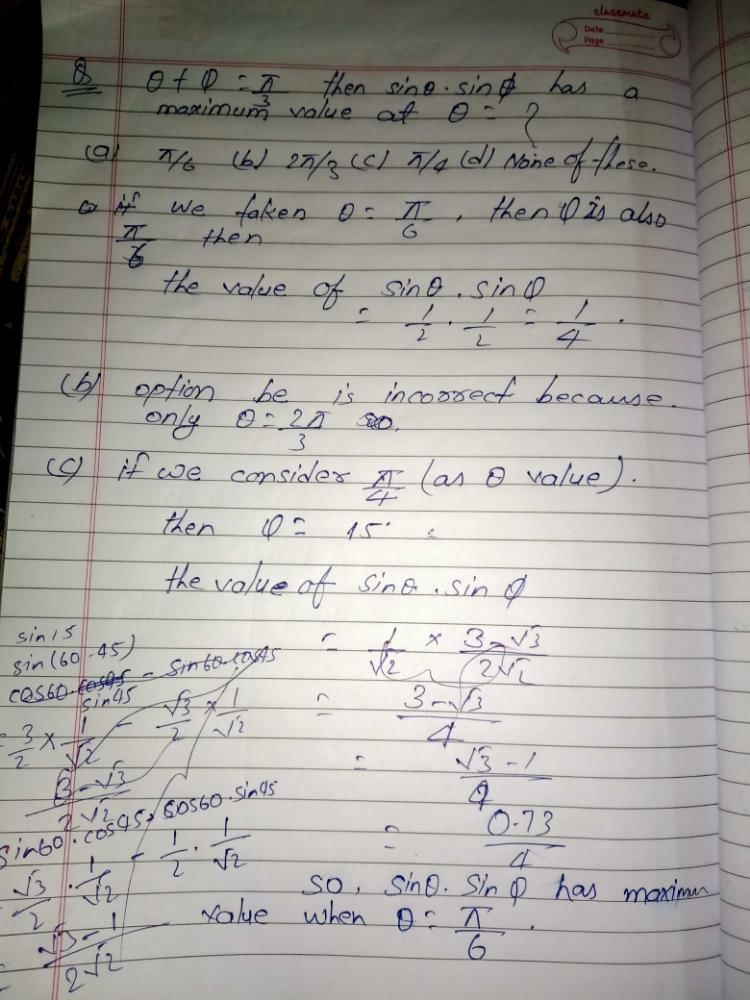 classmate
Date
Page
Q θ + φ = π/3 then sinθ·sinφ has a
maximum value at θ = ?
(a) π/6 (b) 2π/3 (c) π/4 (d) None of these.
if we taken θ = π/6, then φ is also
π/6 then
the value of sinθ.sinφ
= 1/2 · 1/2 = 1/4.
(b) option be is incorrect because.
only θ = 2π/3
(c) if we consider π/4 (as θ value).
then φ = 15°
the value of sinθ.sinφ
sin15
sin(60-45)
cos60.cos45 - sin60.cos45
sin45
= 3/2 × 1/√2 - √3/2 × 1/√2
3-√3/2√2
sin60.cos45 - cos60.sin45
√3/2 · 1/√2 - 1/2 · 1/√2
= √3-1/2√2
= 1/√2 × 3-√3/2√2
= 3-√3/4
= √3-1/4
= 0.73/4
so, sinθ.sinφ has maximum
value when θ = π/6.